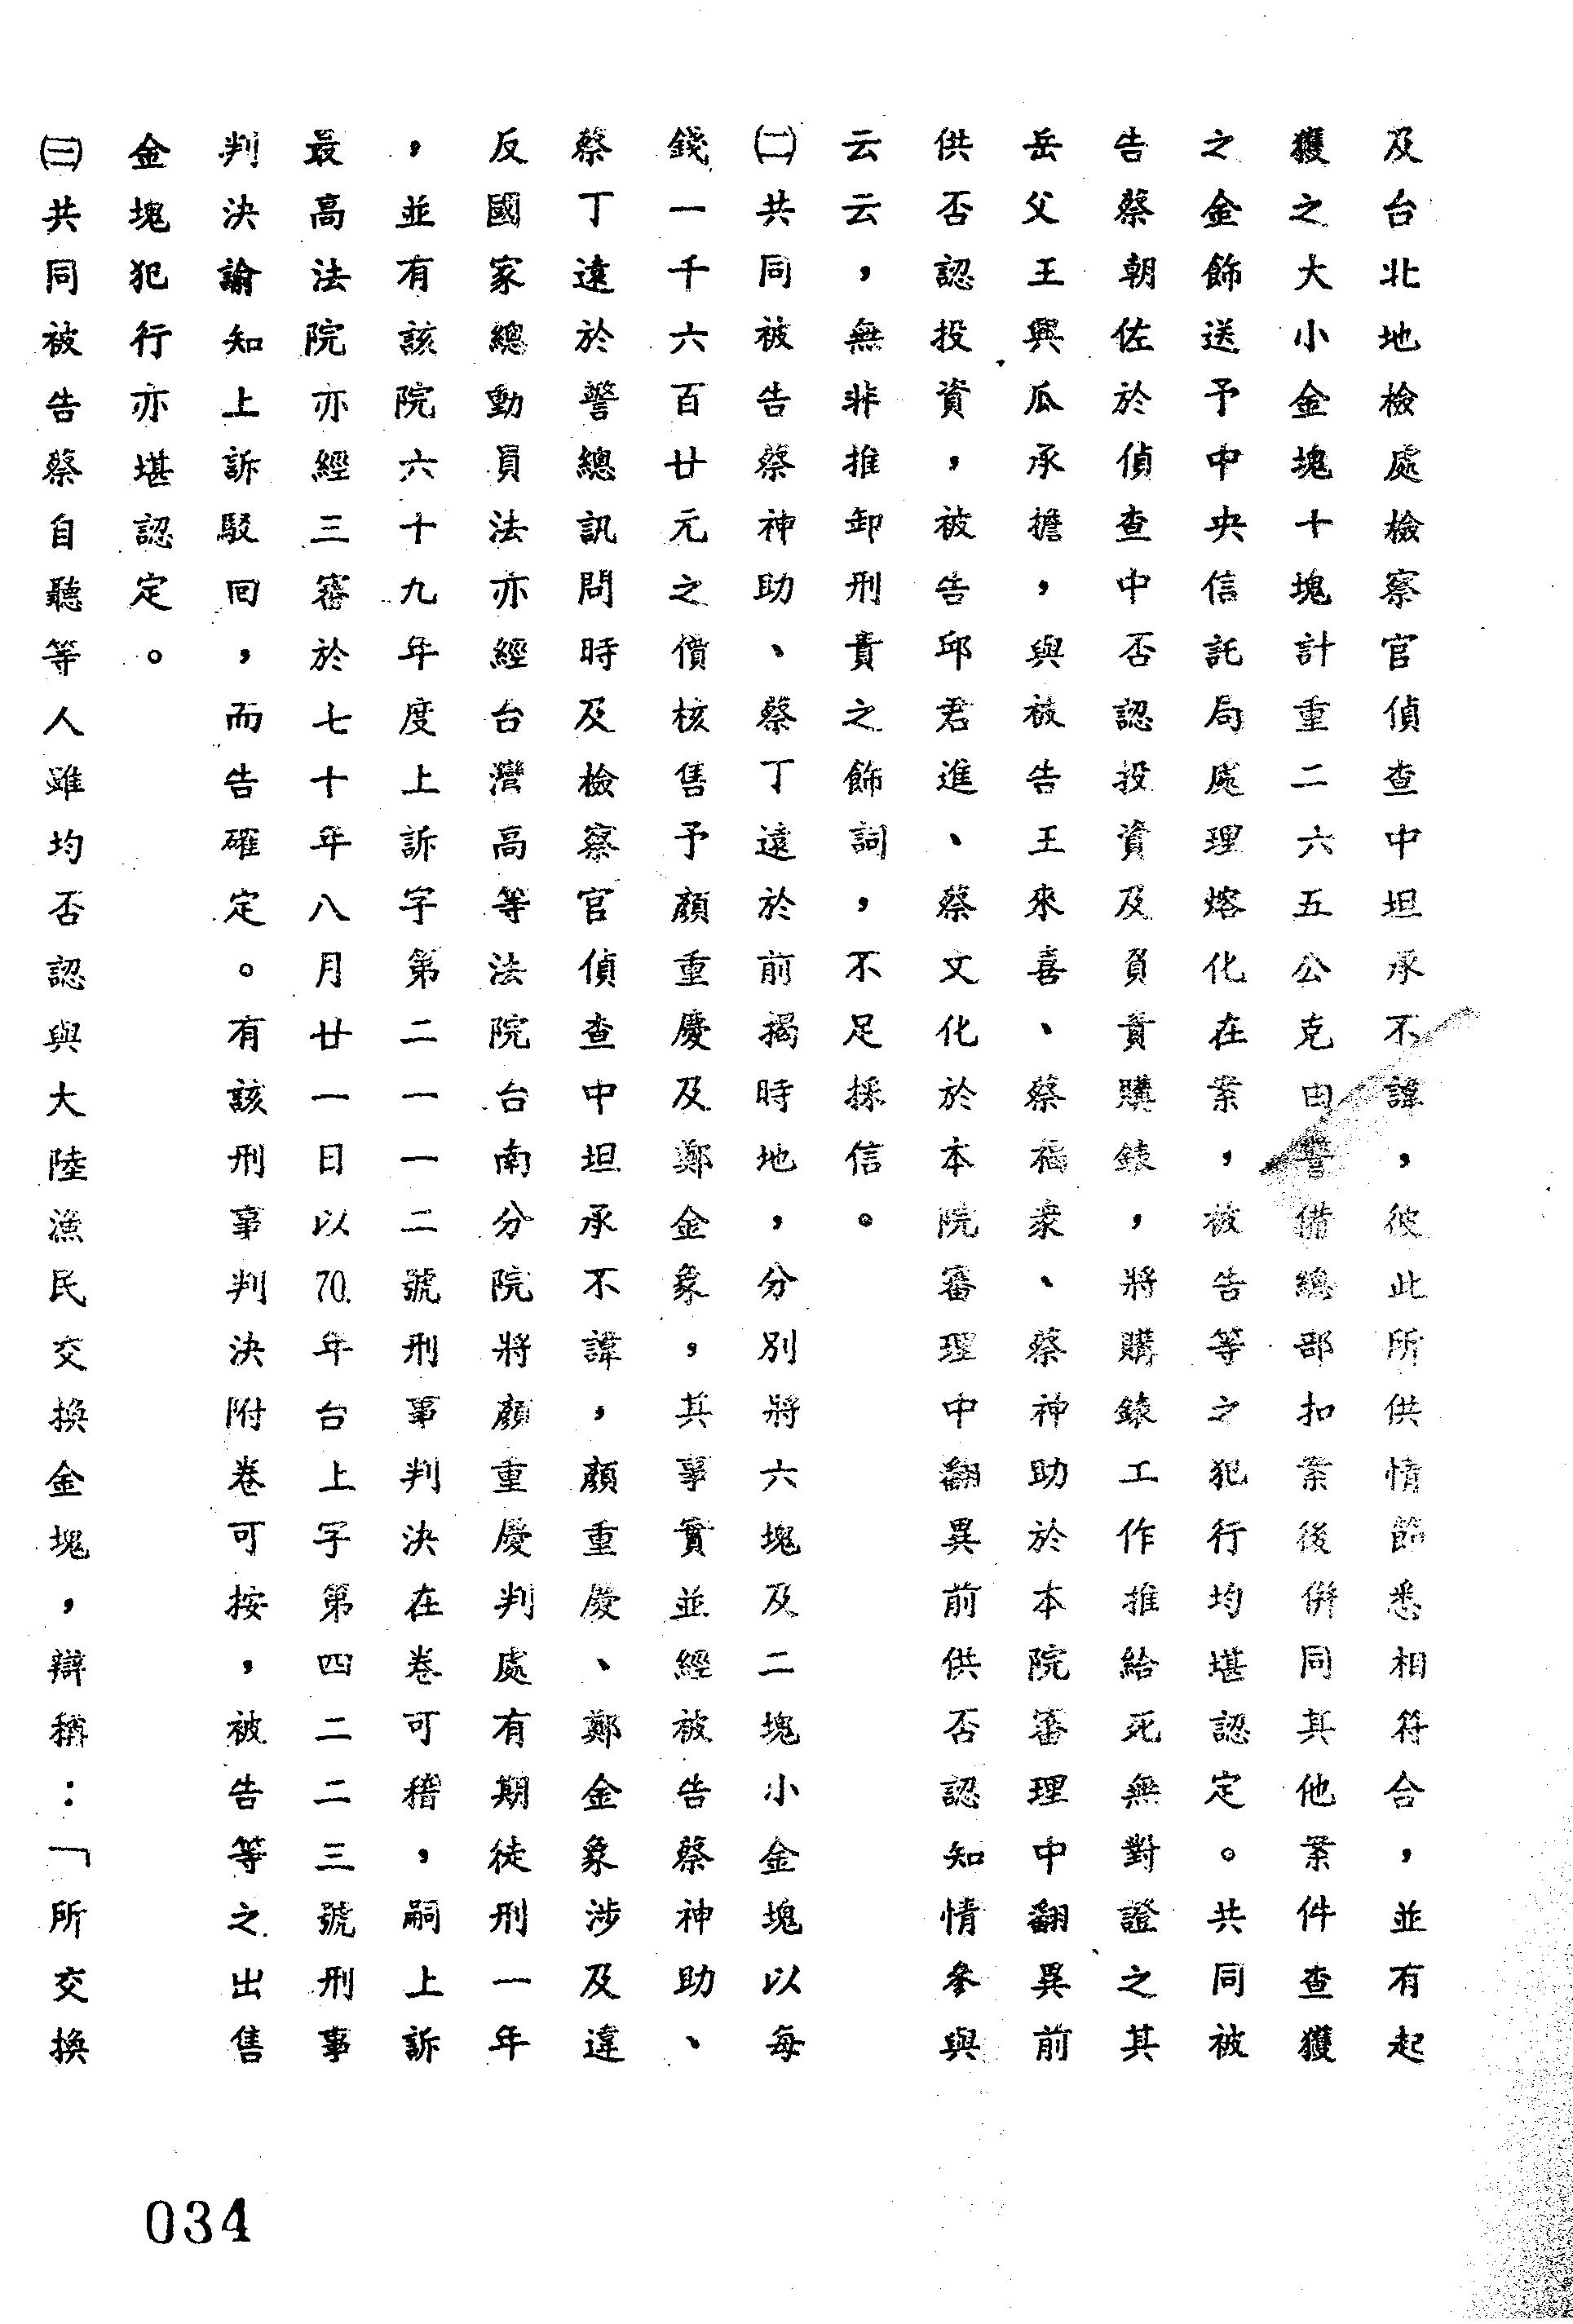 及台北地檢處檢察官偵查中坦承不諱，彼此所供情節悉相符合，並有起
獲之大小金塊十塊計重二六五公克由警備總部扣案後併同其他案件查獲
之金飾送予中央信託局處理熔化在案，被告等之犯行均堪認定。共同被
告蔡朝佐於偵查中否認投資及負責購錶，將購錶工作推給死無對證之其
岳父王興瓜承擔，與被告王來喜、蔡福眾、蔡神助於本院審理中翻異前
供否認投資，被告邱君進、蔡文化於本院審理中翻異前供否認知情參與
云云，無非推卸刑責之飾詞，不足採信。
㈡共同被告蔡神助、蔡丁遠於前揭時地，分別將六塊及二塊小金塊以每
錢一千六百廿元之價核售予顏重慶及鄭金象，其事實並經被告蔡神助、
蔡丁遠於警總訊問時及檢察官偵查中坦承不諱，顏重慶、鄭金象涉及違
反國家總動員法亦經台灣高等法院台南分院將顏重慶判處有期徒刑一年
，並有該院六十九年度上訴字第二一一二號刑事判決在卷可稽，嗣上訴
最高法院亦經三審於七十年八月廿一日以70.年台上字第四二二三號刑事
判決諭知上訴駁回，而告確定。有該刑事判決附卷可按，被告等之出售
金塊犯行亦堪認定。
㈢共同被告蔡自聽等人雖均否認與大陸漁民交換金塊，辯稱：「所交換
034